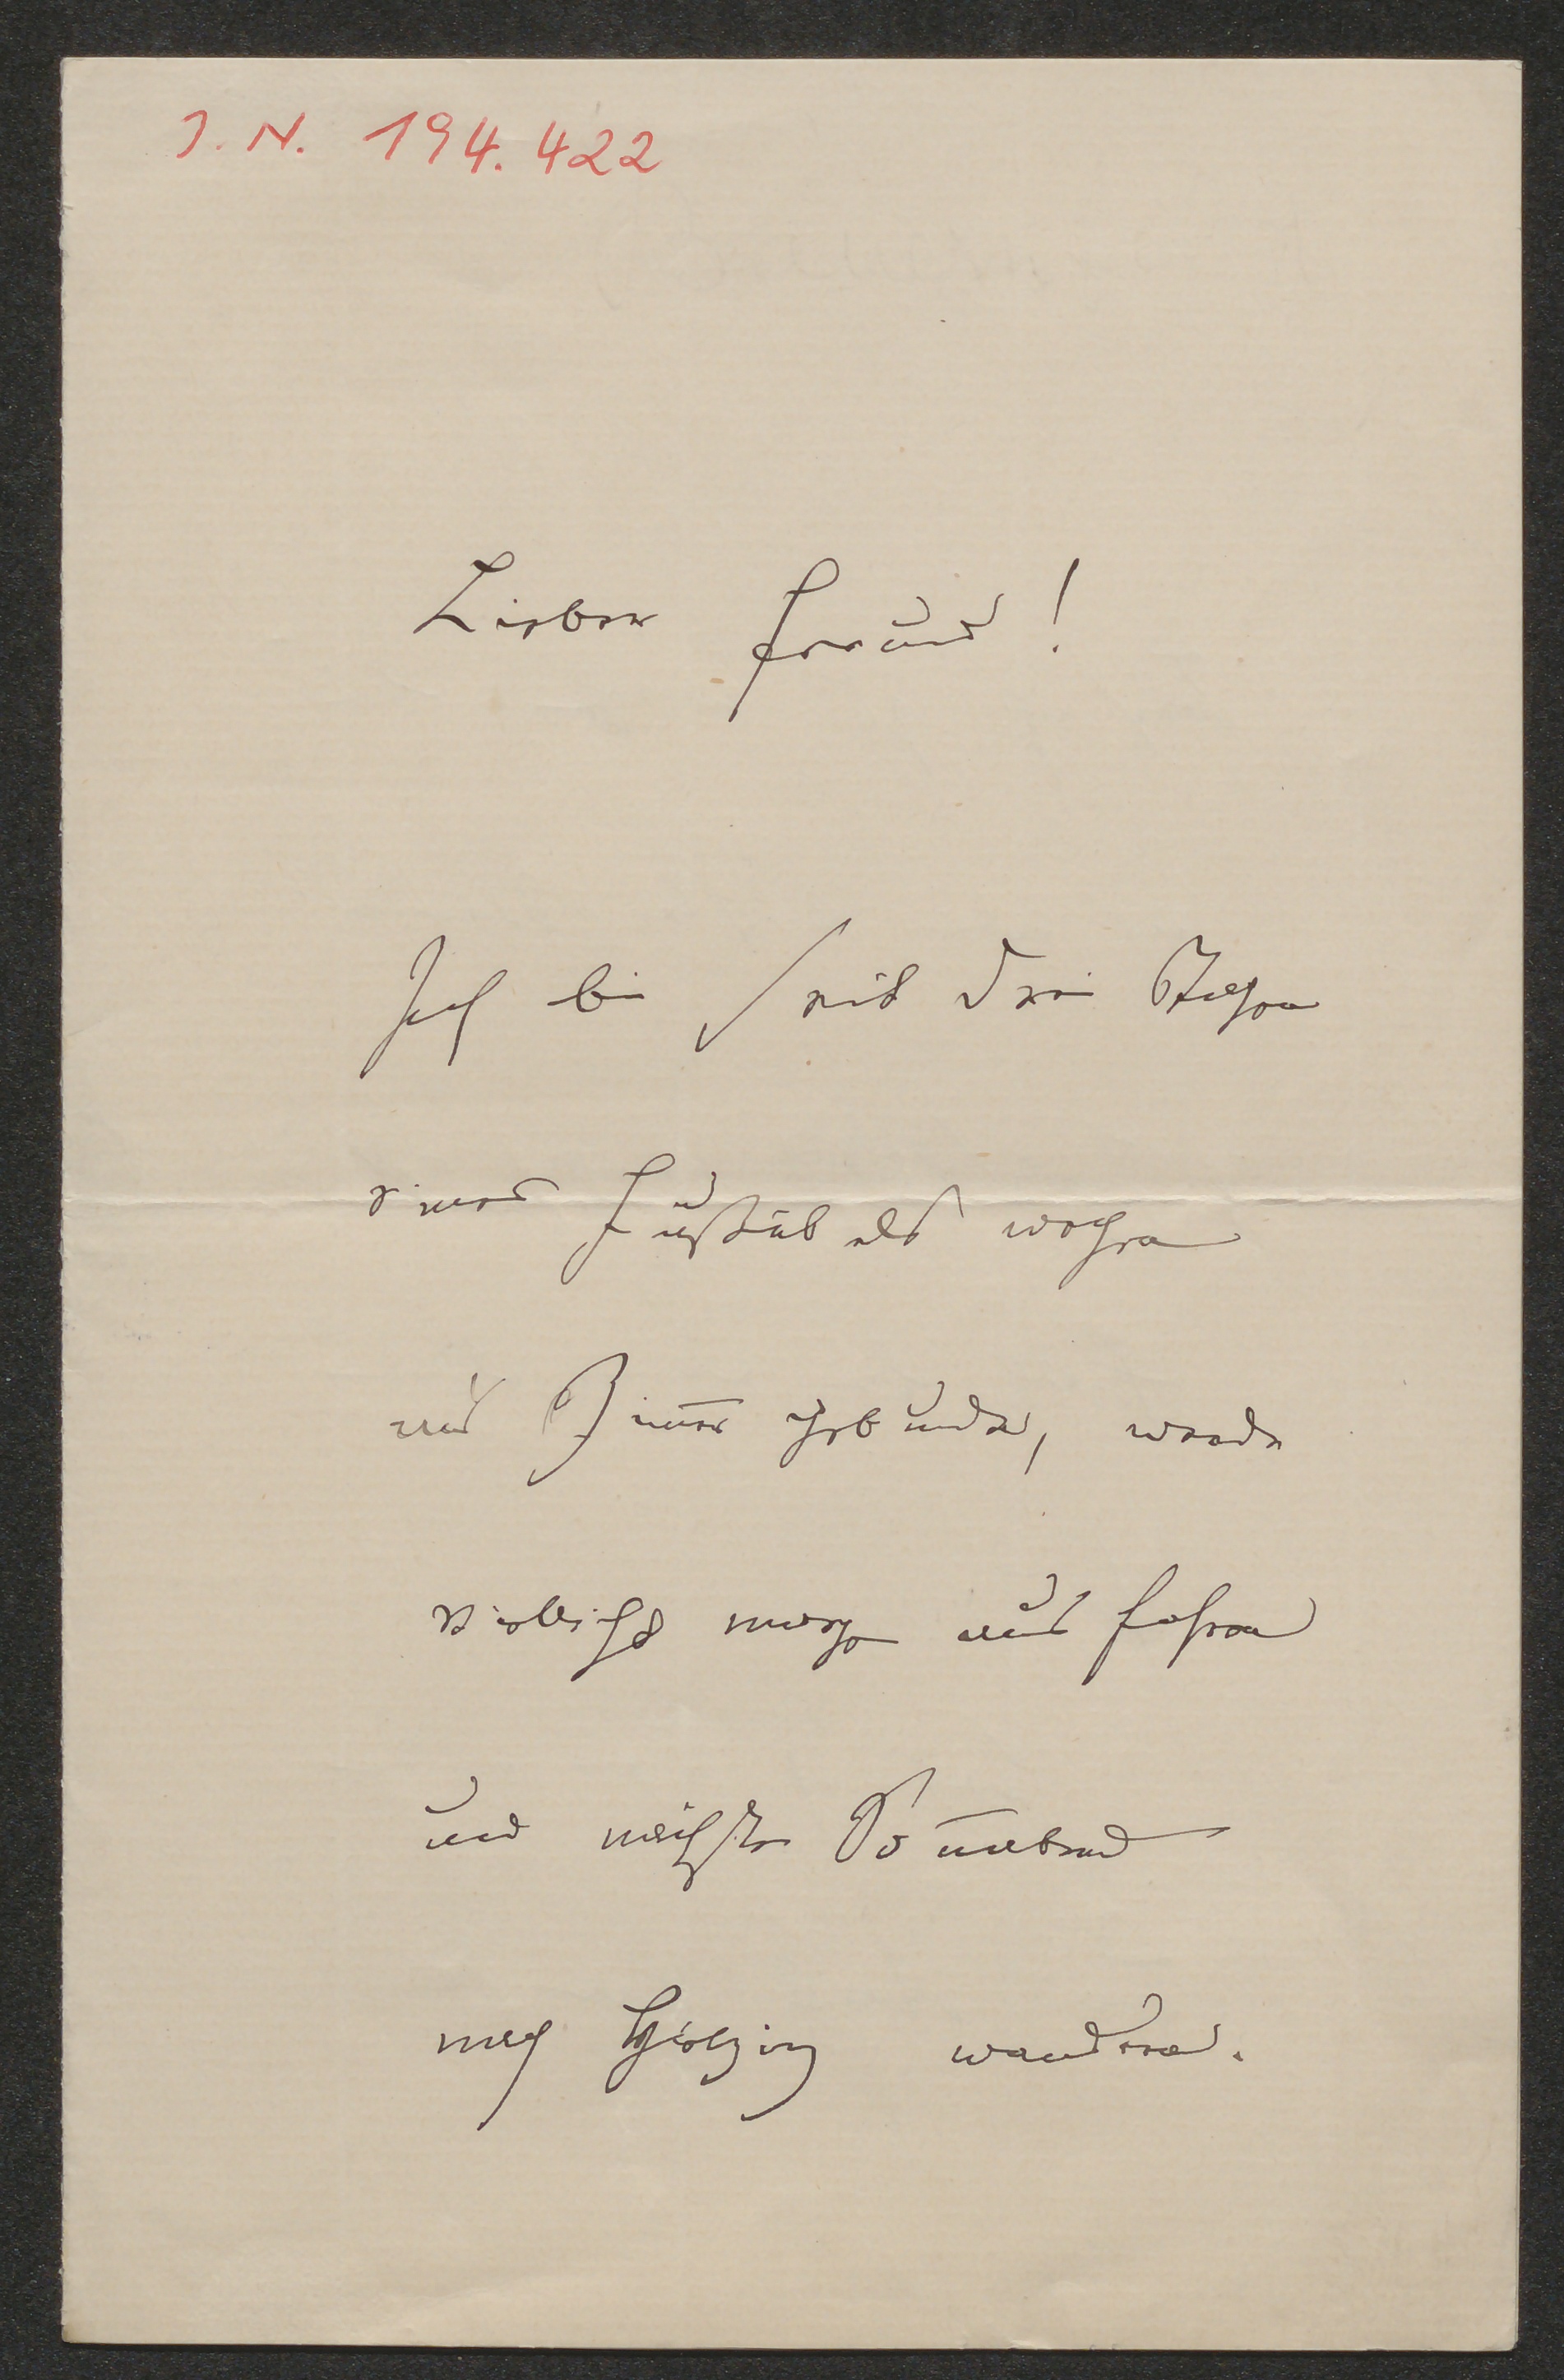 J. N. 194.422
Lieber Freund!
Ich bin seit drei Tagen
eines Fußübels wegen
ans Zimmer gebunden, werde
vielleicht morgen ausfahren
und nächsten Sonnabend
nach Hietzing wandern.